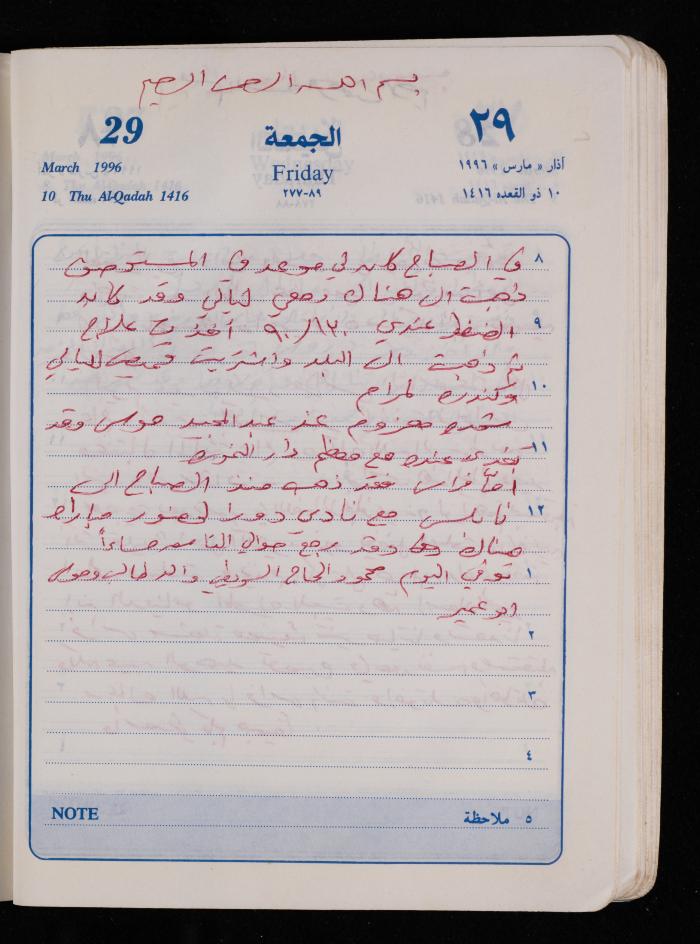 بسم الله الرحمن الرحيم
29 الجمعة ٢٩
March 1996 Friday آذار « مارس » ١٩٩٦
10 Thu Al-Qadah 1416 ٢٧٧-٨٩ ١٠ ذو القعده ١٤١٦
٨ في الصباح كان لي موعد في المستوصف
ذهبت الى هناك ومعي ليالي وقد كان
٩ الضغط عندي ٩٠/١٣٠ أخذت علاج
ثم ذهبت الى البلد واشتريت قميص لليالي
١٠ وكندرة لمرام
معزوم عند عبد المجيد وقد
١١ تغدى عنده مع معظم دار
أما فراس فقد ذهب منذ الصباح الى
١٢ نابلس مع نادي دورا لحضور مباراة
هناك وقد رجع حوالي التاسعة مساءاً
١ توفي اليوم محمود الحاج السويطي والد طالب
ابو عمير
٢
٣
٤
NOTE ٥ ملاحظة